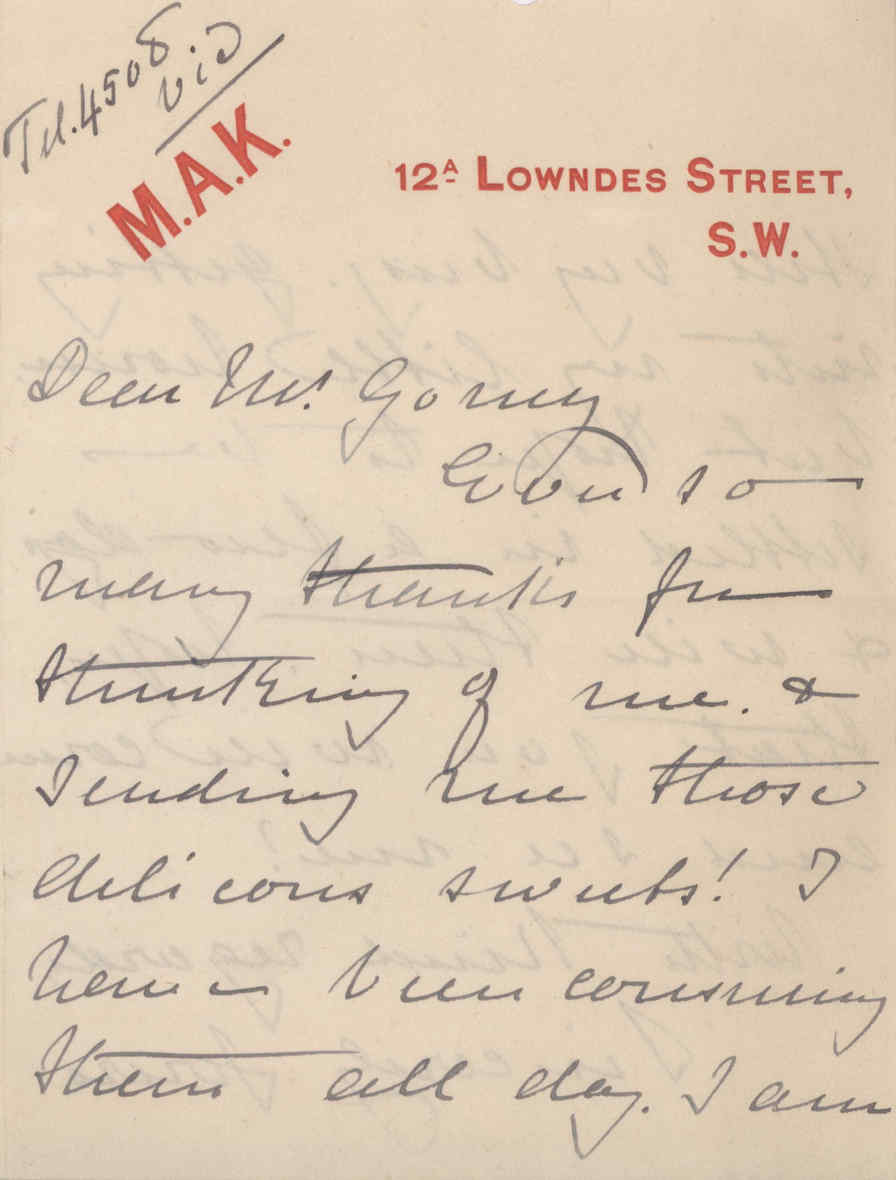 Tel. 4508
Vic
M.A.K.
12A LOWNDES STREET,
S.W.
Dear Mr. Gorney
Ever so
many thanks for
thinking of me. &
sending me those
delicous sweets! I
have been consuming
them all day. I am